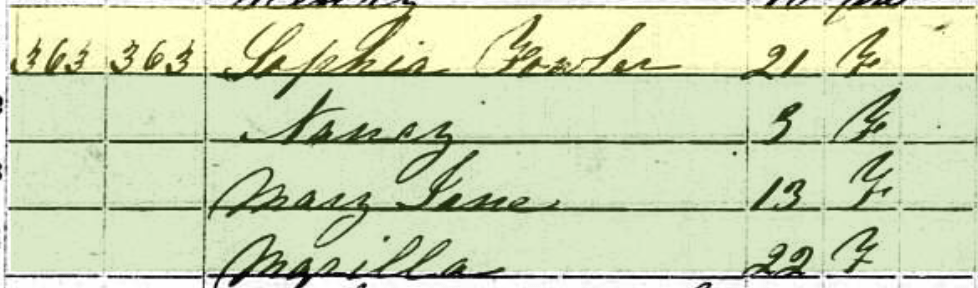 363 363 Sophia Fowler 21 F
Nancy 3 F
Mary Jane 13 F
Marilla 22 F